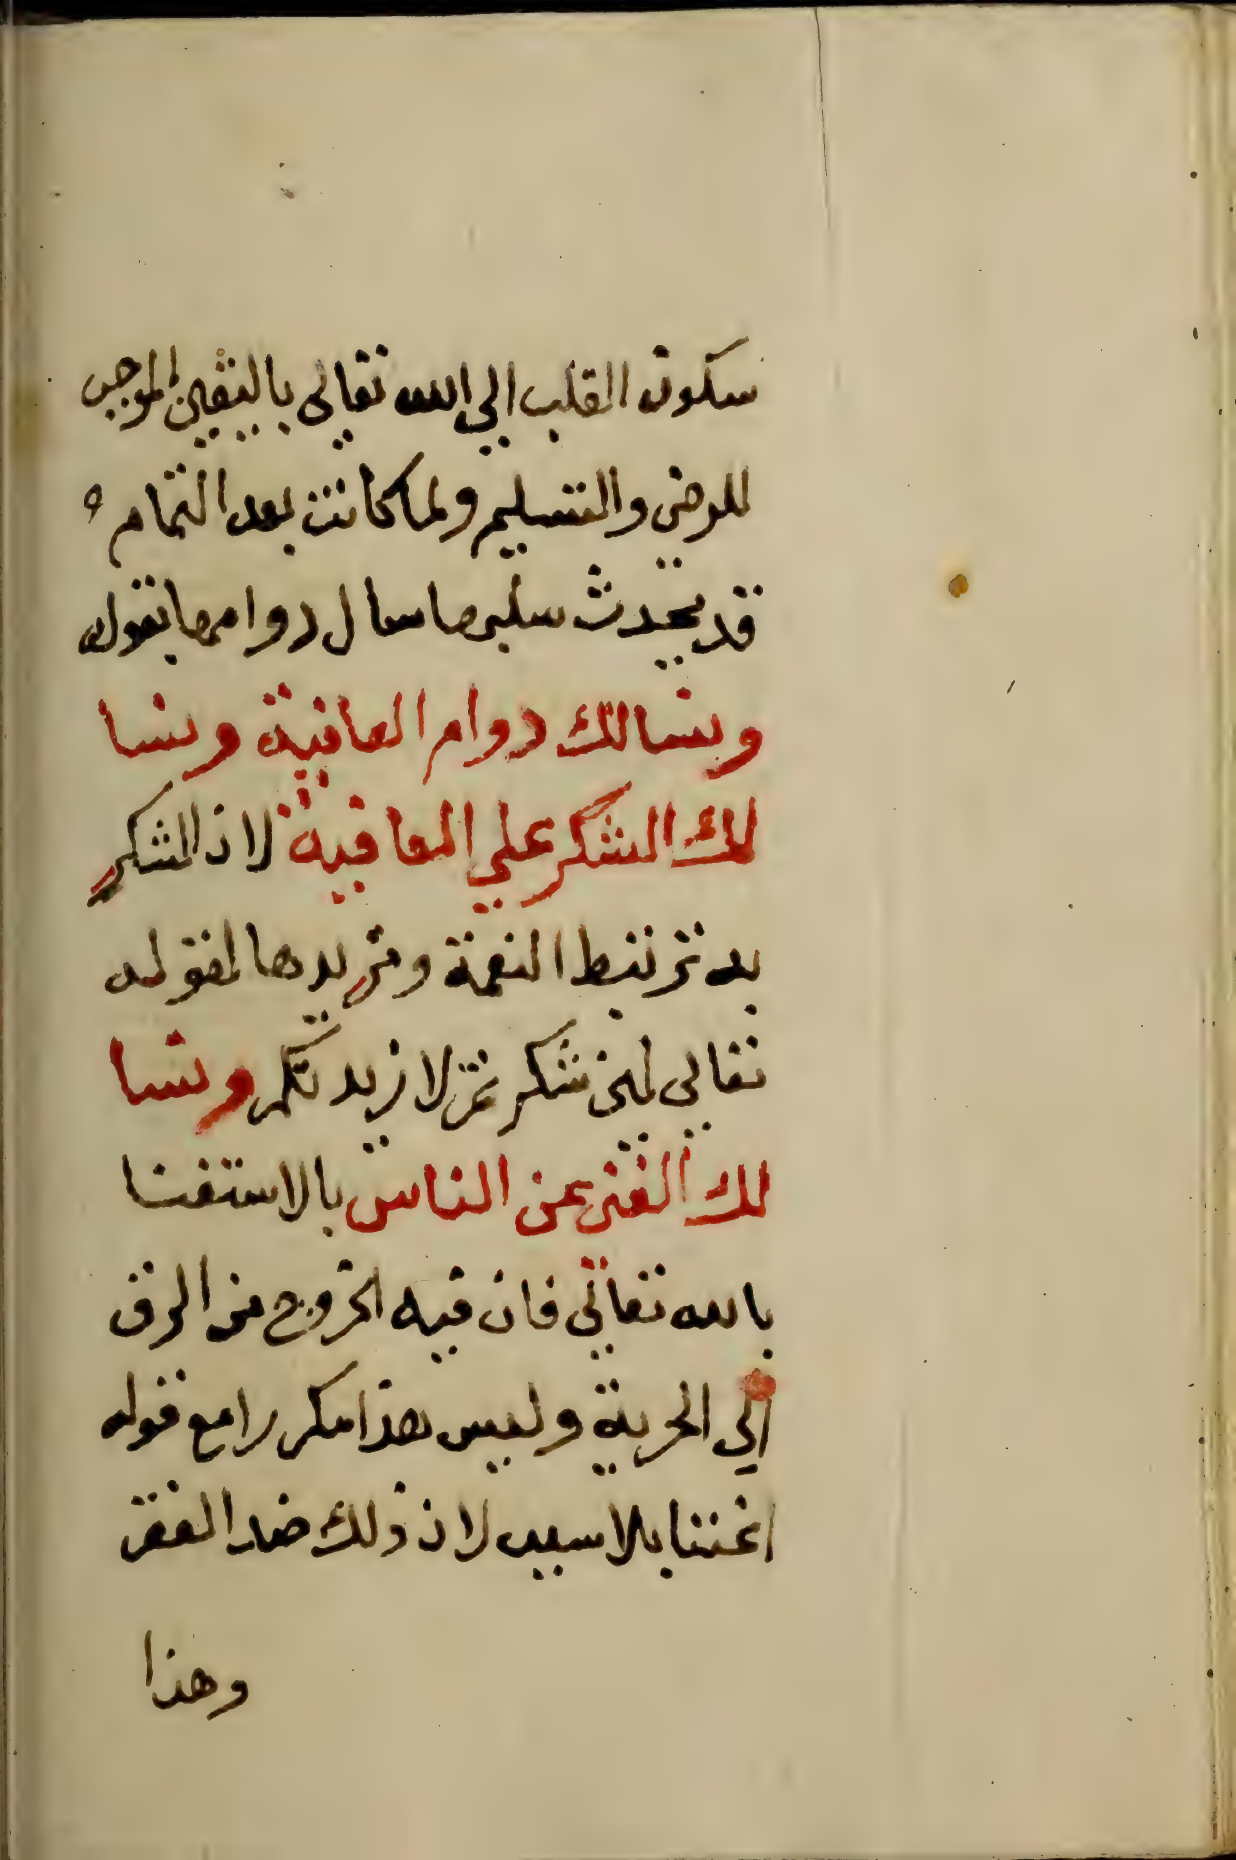 سكون القلب الي الله تعالى باليقين الموجب
للرضى والتسليم ولما كانت بعد التمام ه
قد يحدث سلبها سال دوامها بقوله
ونسالك دوام العافية ونسا
لك الشكر علي العافية لان الشكر
به ترتبط النعمة ومزيدها لقوله
تعالي لئن شكرتم لازيدنكم ونسا
لك الغنى عن الناس بالاستغنا
بالله تعالي فان فيه الخروج من الرق
الي الحرية وليس هذا مكررا مع قوله
اغننا بلا سبب لان ذلك ضد الفقر
وهذا